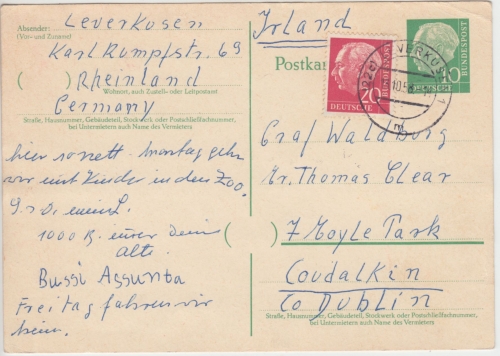 Absender:
(Vor- und Zuname)
Leverkusen
Karl Rumpfstr. 69
( ) Rheinland
Wohnort, auch Zustell- oder Leitpostamt
Germany
Straße, Hausnummer, Gebäudeteil, Stockwerk oder Postschließfachnummer,
bei Untermietern auch Name des Vermieters
hier so nett. Montag gehen
wir mit Kinder in den Zoo.
1000 B. eurer
alte
Bussi Assunta
Freitag fahren wir
heim.
Irland
Postkarte
20
DEUTSCHE BUNDESPOST
10
DEUTSCHE BUNDESPOST
LEVERKUSEN
Graf Waldburg
Mr. Thomas Clear
( ) 7 Moyle Park
Coudalkin
Co Dublin
Straße, Hausnummer, Gebäudeteil, Stockwerk oder Postschließfachnummer,
bei Untermietern auch Name des Vermieters